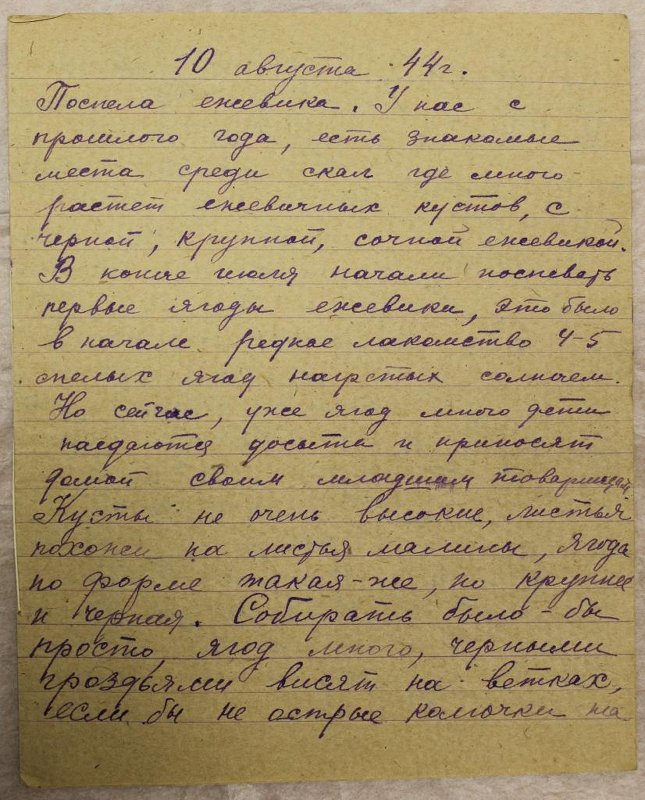 10 августа 44 г.
Поспела ежевика. У нас с
прошлого года, есть знакомые
места среди скал где много
растет ежевичных кустов, с
черной, крупной, сочной ежевикой.
В конце июля начали поспевать
первые ягоды ежевики, это было
в начале редкое лакомство 4-5
спелых ягод нагретых солнцем.
Но сейчас, уже ягод много дети
наедаются досыта и приносят
домой своим младшим товарищам
Кусты не очень высокие, листья
похожи на листья малины, ягода
по форме такая-же, но крупнее
и черная. Собирать было-бы
просто, ягод много, черными
гроздьями висят на ветках,
если бы не острые колючки на